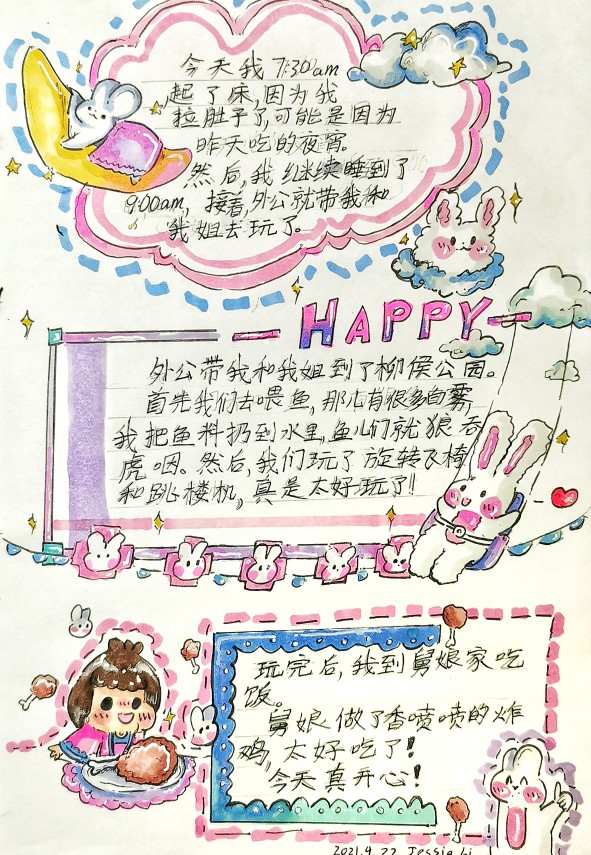 今天我7:30am
起了床,因为我
拉肚子了,可能是因为
昨天吃的夜宵。
然后,我继续睡到了
9:00am,接着,外公就带我和
我姐去玩了。
HAPPY
外公带我和我姐到了柳侯公园。
首先我们去喂鱼,那儿有很多白雾,
我把鱼料扔到水里,鱼儿们就狼吞
虎咽。然后,我们玩了旋转飞椅
和跳楼机,真是太好玩了!
玩完后,我到舅娘家吃
饭。
舅娘做了香喷喷的炸
鸡,太好吃了!
今天真开心!
2021.4.22 Jessie Li